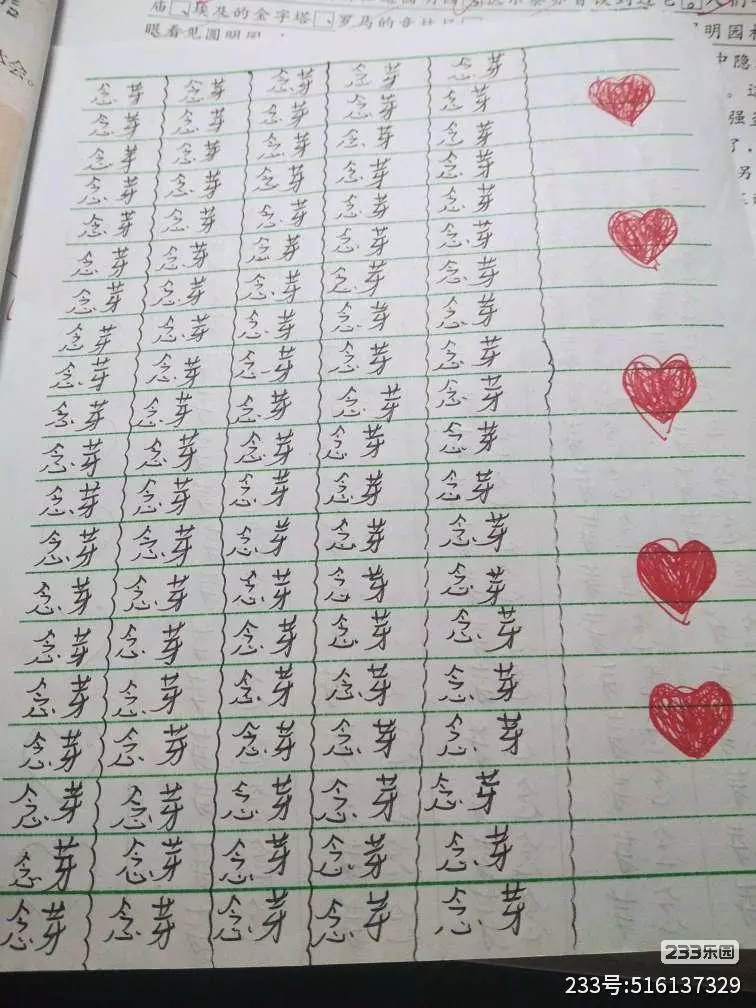 庙、埃及的金字塔、罗马的
眼看见圆明园
明园
中隐
强
了，
另
会。
念芽 念芽 念芽 念芽 念芽
念芽 念芽 念芽 念芽 念芽
念芽 念芽 念芽 念芽 念芽
念芽 念芽 念芽 念芽 念芽
念芽 念芽 念芽 念芽 念芽
念芽 念芽 念芽 念芽 念芽
念芽 念芽 念芽 念芽 念芽
念芽 念芽 念芽 念芽 念芽
念芽 念芽 念芽 念芽 念芽
念芽 念芽 念芽 念芽 念芽
念芽 念芽 念芽 念芽 念芽
念芽 念芽 念芽 念芽 念芽
念芽 念芽 念芽 念芽 念芽
念芽 念芽 念芽 念芽 念芽
念芽 念芽 念芽 念芽 念芽
念芽 念芽 念芽 念芽 念芽
念芽 念芽 念芽 念芽 念芽
念芽 念芽 念芽 念芽 念芽
念芽 念芽 念芽 念芽 念芽
念芽 念芽 念芽 念芽 念芽
233乐园
233号:516137329